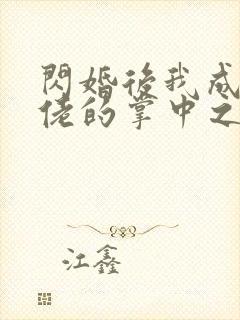 閃婚後我成
佬的掌中之
江鑫